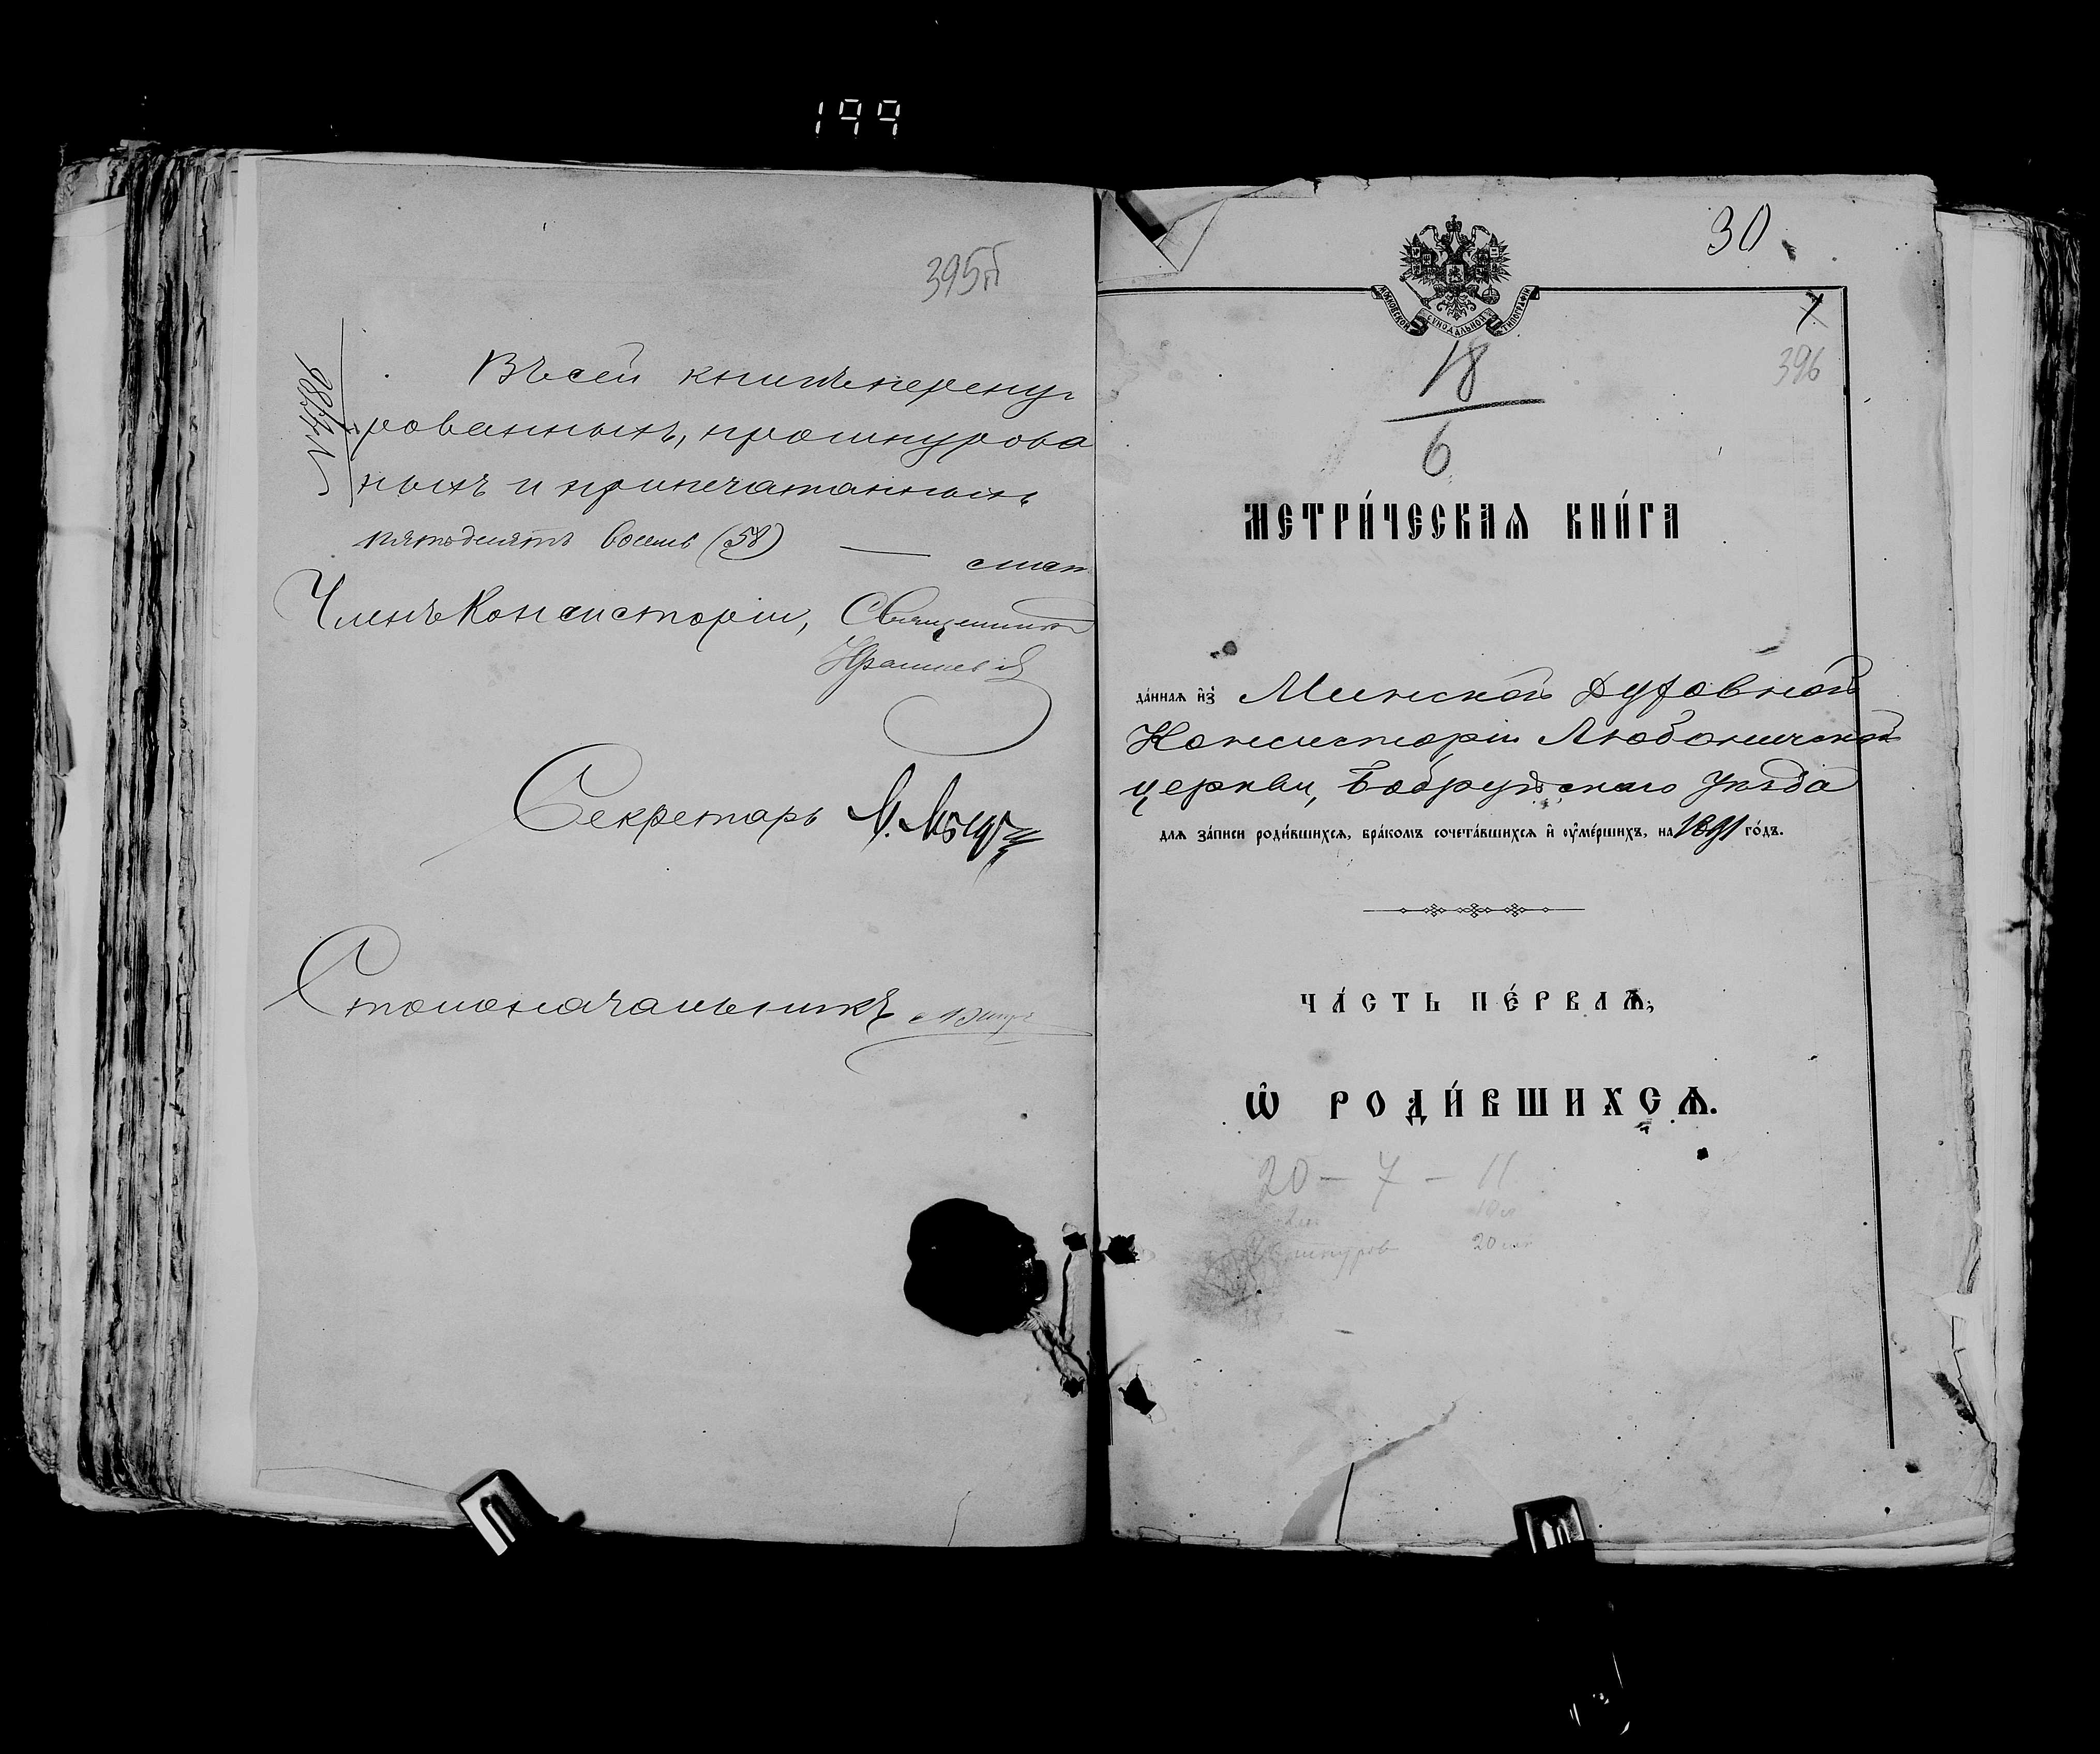 199
395об
Въ сей книгѣ перену-
рованныхъ, прошнурова
ныхъ и припечатанныхъ
пятьдесятъ восемь (58) — лист
Членъ Консисторіи, Священникъ
Секретарь
Столоначальникъ
30
МОСКОВСКОЙ СѴНОДАЛЬНОЙ ТИПОГРАФІИ
396
18
6
МЕТРИ́ЧЕСКАѦ КНИ́ГА
да́ннаѧ и҆з̾ Минской Духовной
Консисторіи Любоничской
церкви, Бобруйскаго уѣзда
длѧ за́писи роди́вшихсѧ, бра́комъ сочета́вшихсѧ и҆ ᲂу҆ме́ршихъ, на 1891 го́дъ.
ЧА́СТЬ ПЕ́РВАѦ,
Ѽ РОДИ́ВШИХСѦ.
20 – 7 – 11